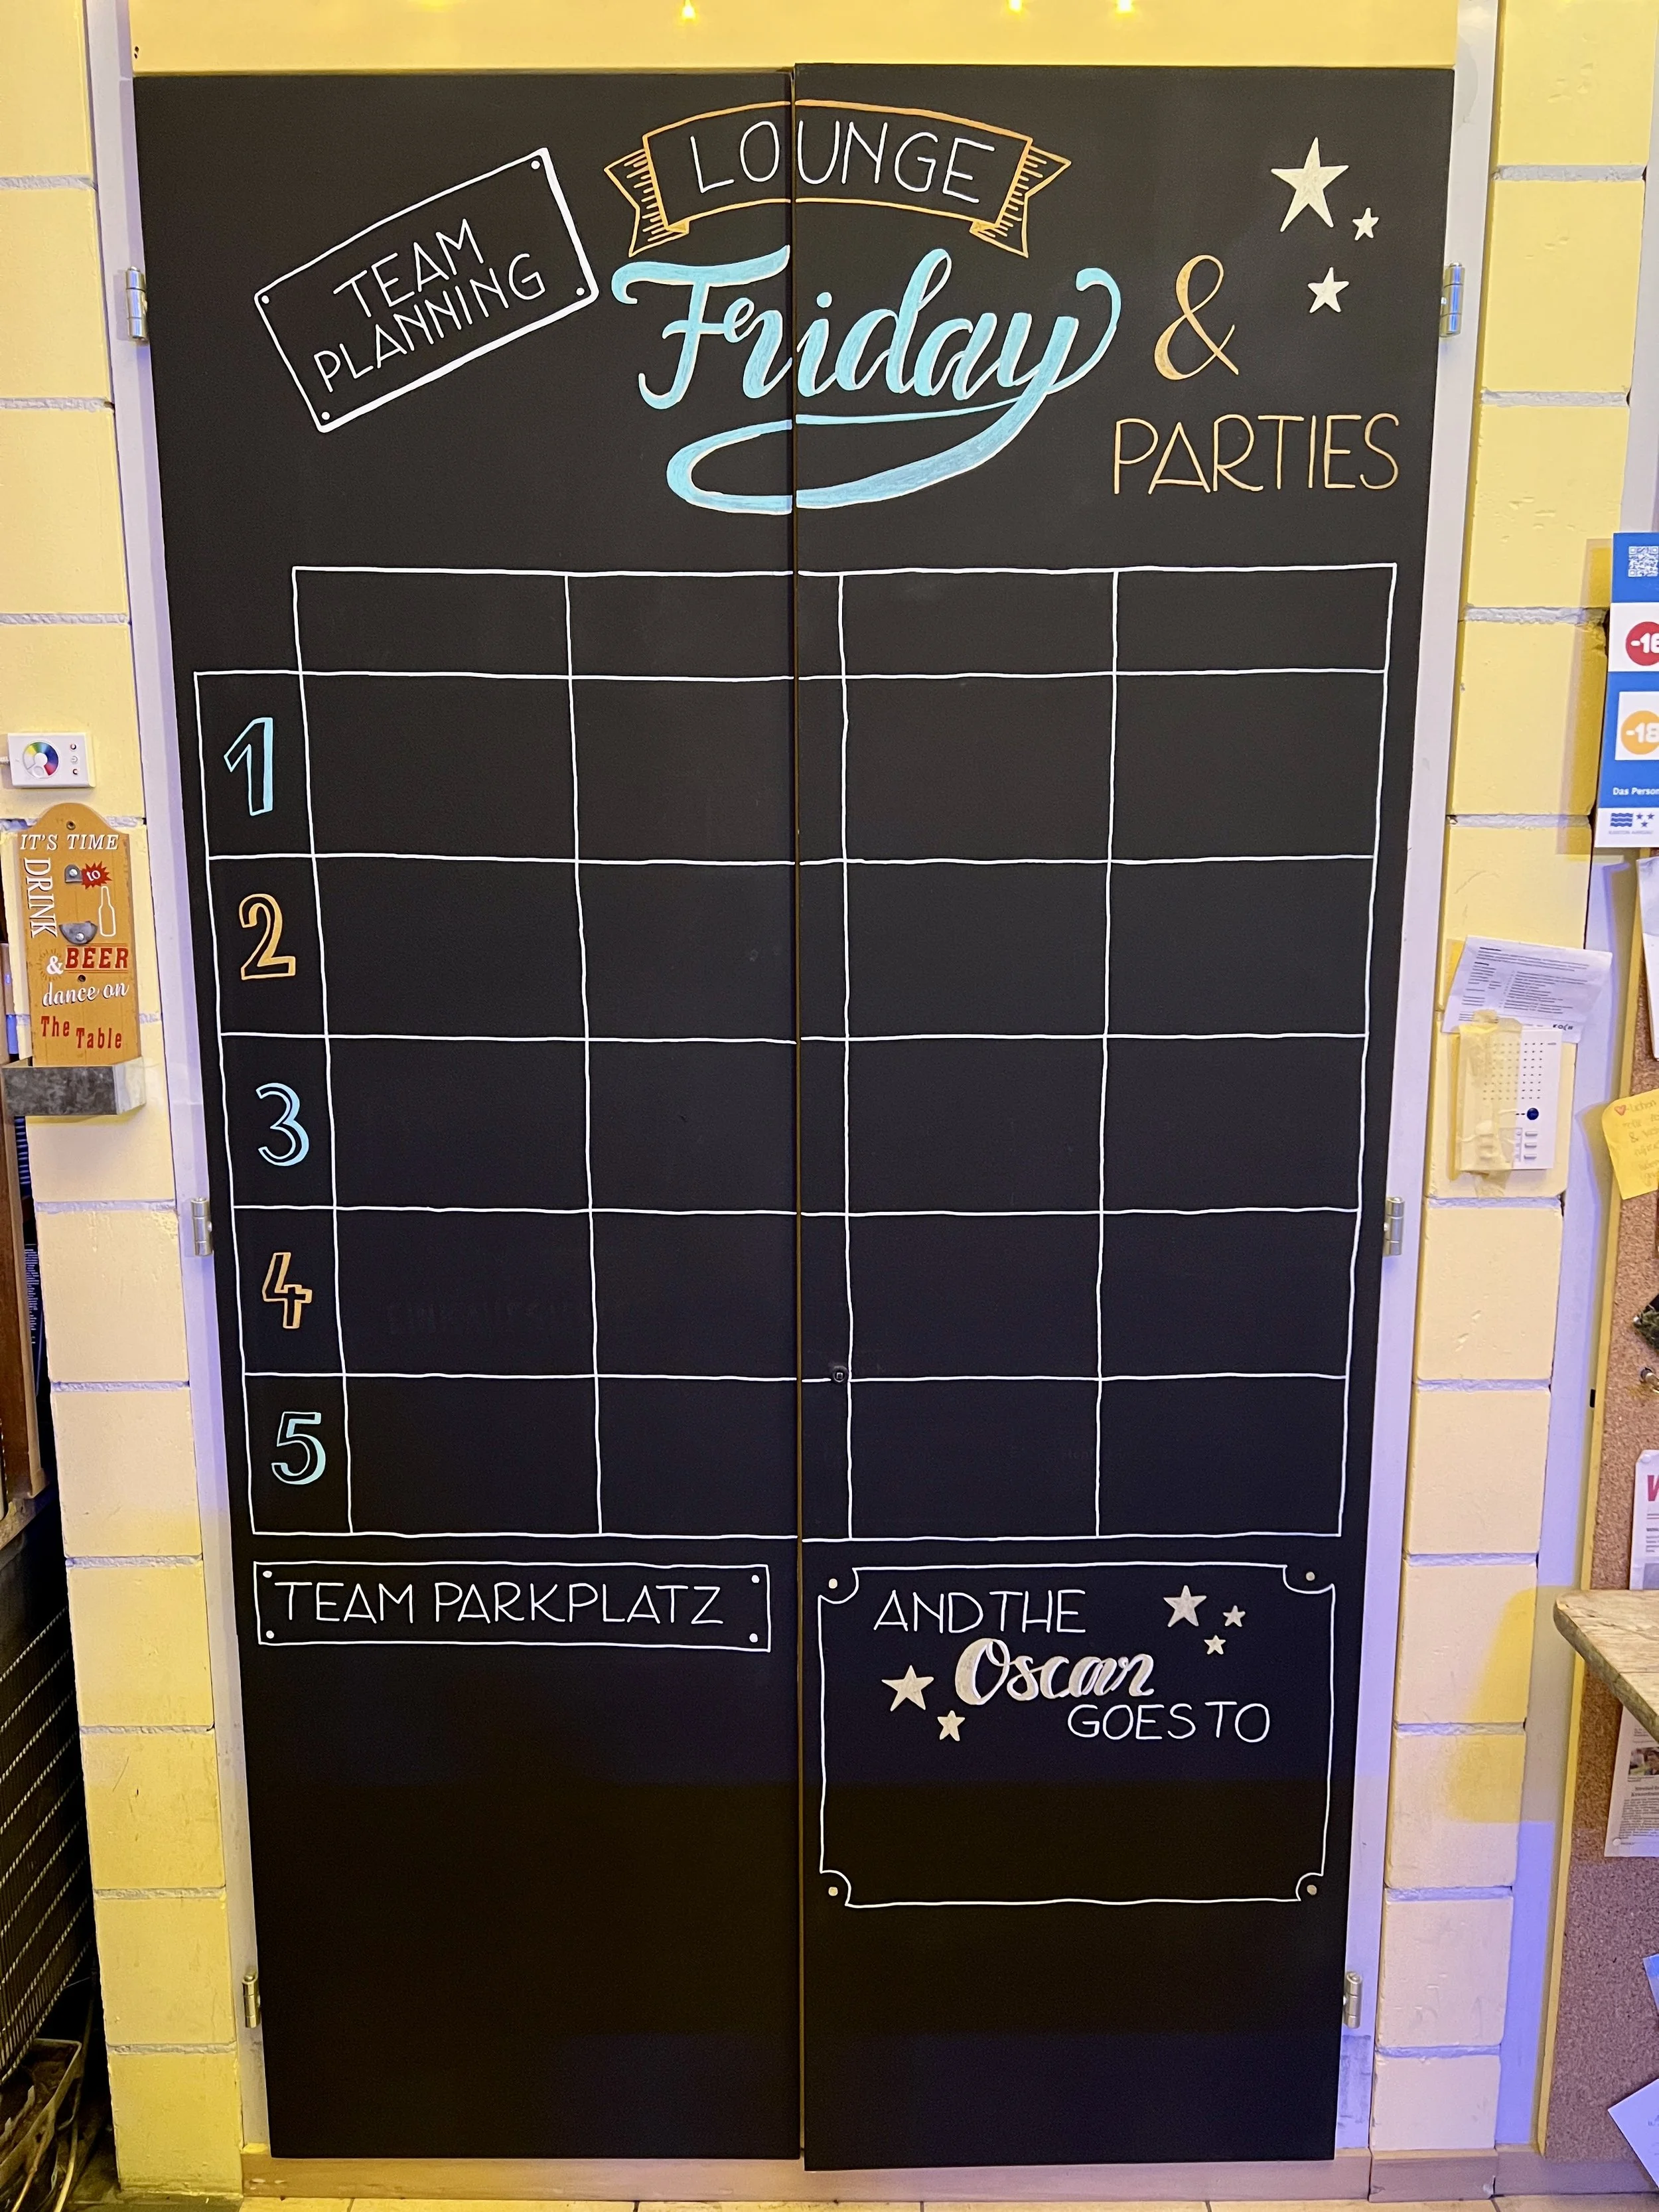 LOUNGE
TEAM
PLANNING
Friday &
PARTIES
1
2
3
4
5
TEAM PARKPLATZ
AND THE
Oscar
GOES TO
IT'S TIME
to
DRINK
& BEER
dance on
The Table
-16
-18
Das Person